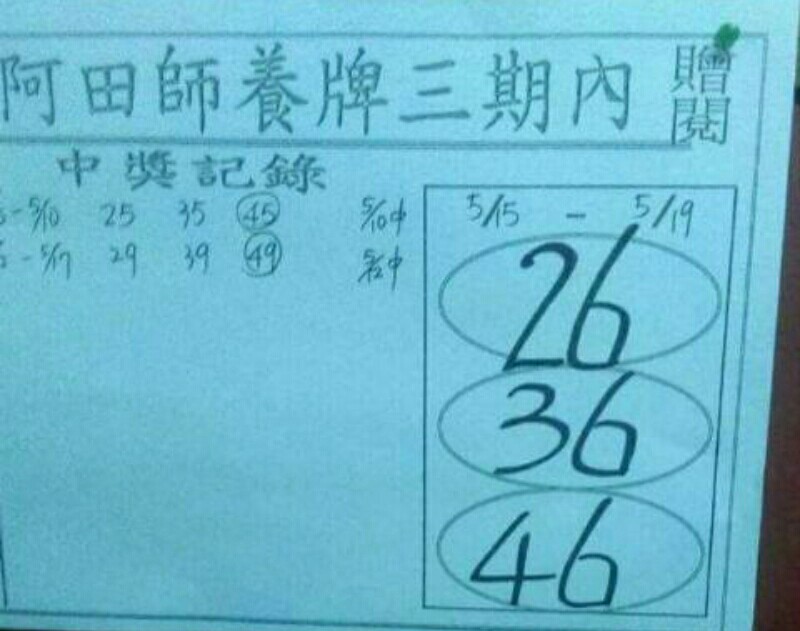 阿田師養牌三期內
贈閱
中獎記錄
-5/10 25 35 45 5/10中
-5/17 29 39 49 5/12中
5/15 - 5/19
26
36
46